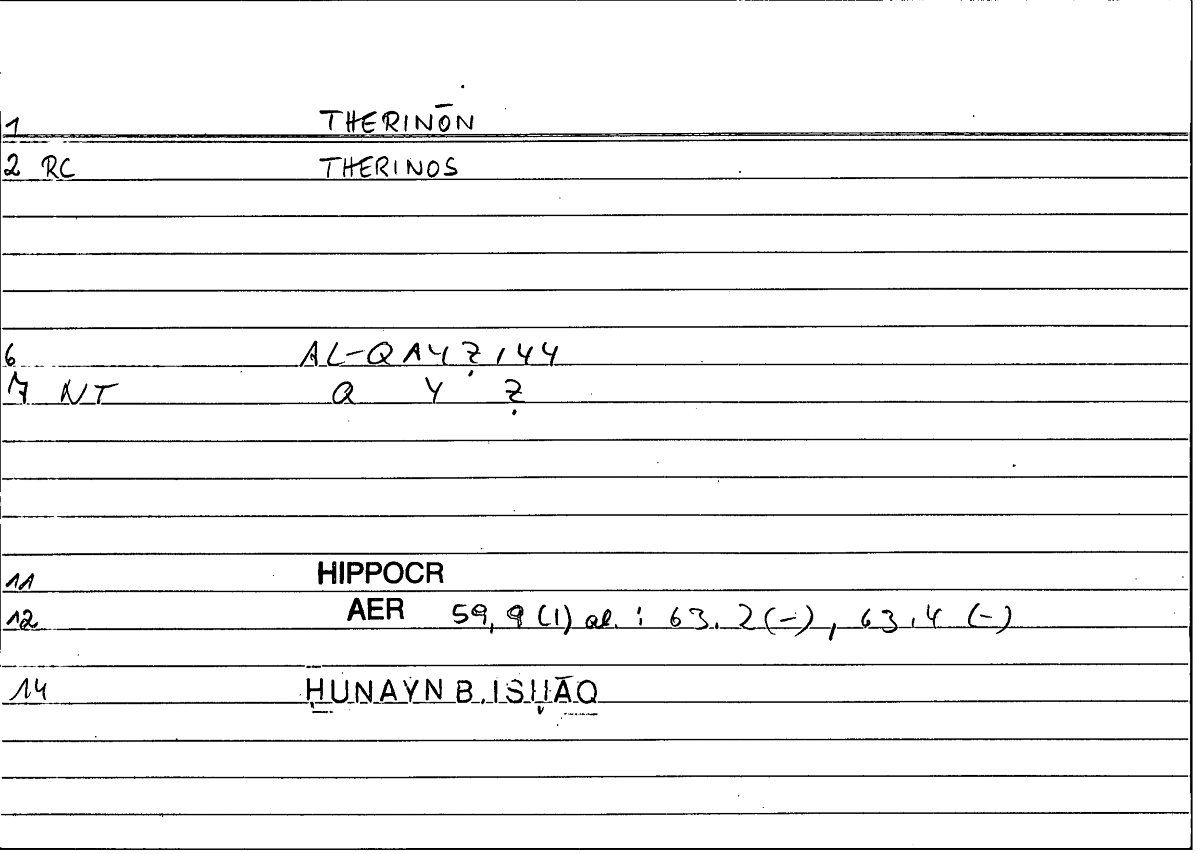 1 THERINŌN
2 RC THERINOS
6 AL-QAYẒ, 44
7 NT Q Y Ẓ
11 HIPPOCR
12 AER 59, 9 (1) al. : 63. 2 (-), 63.4 (-)
14 ḤUNAYN B. ISḤĀQ